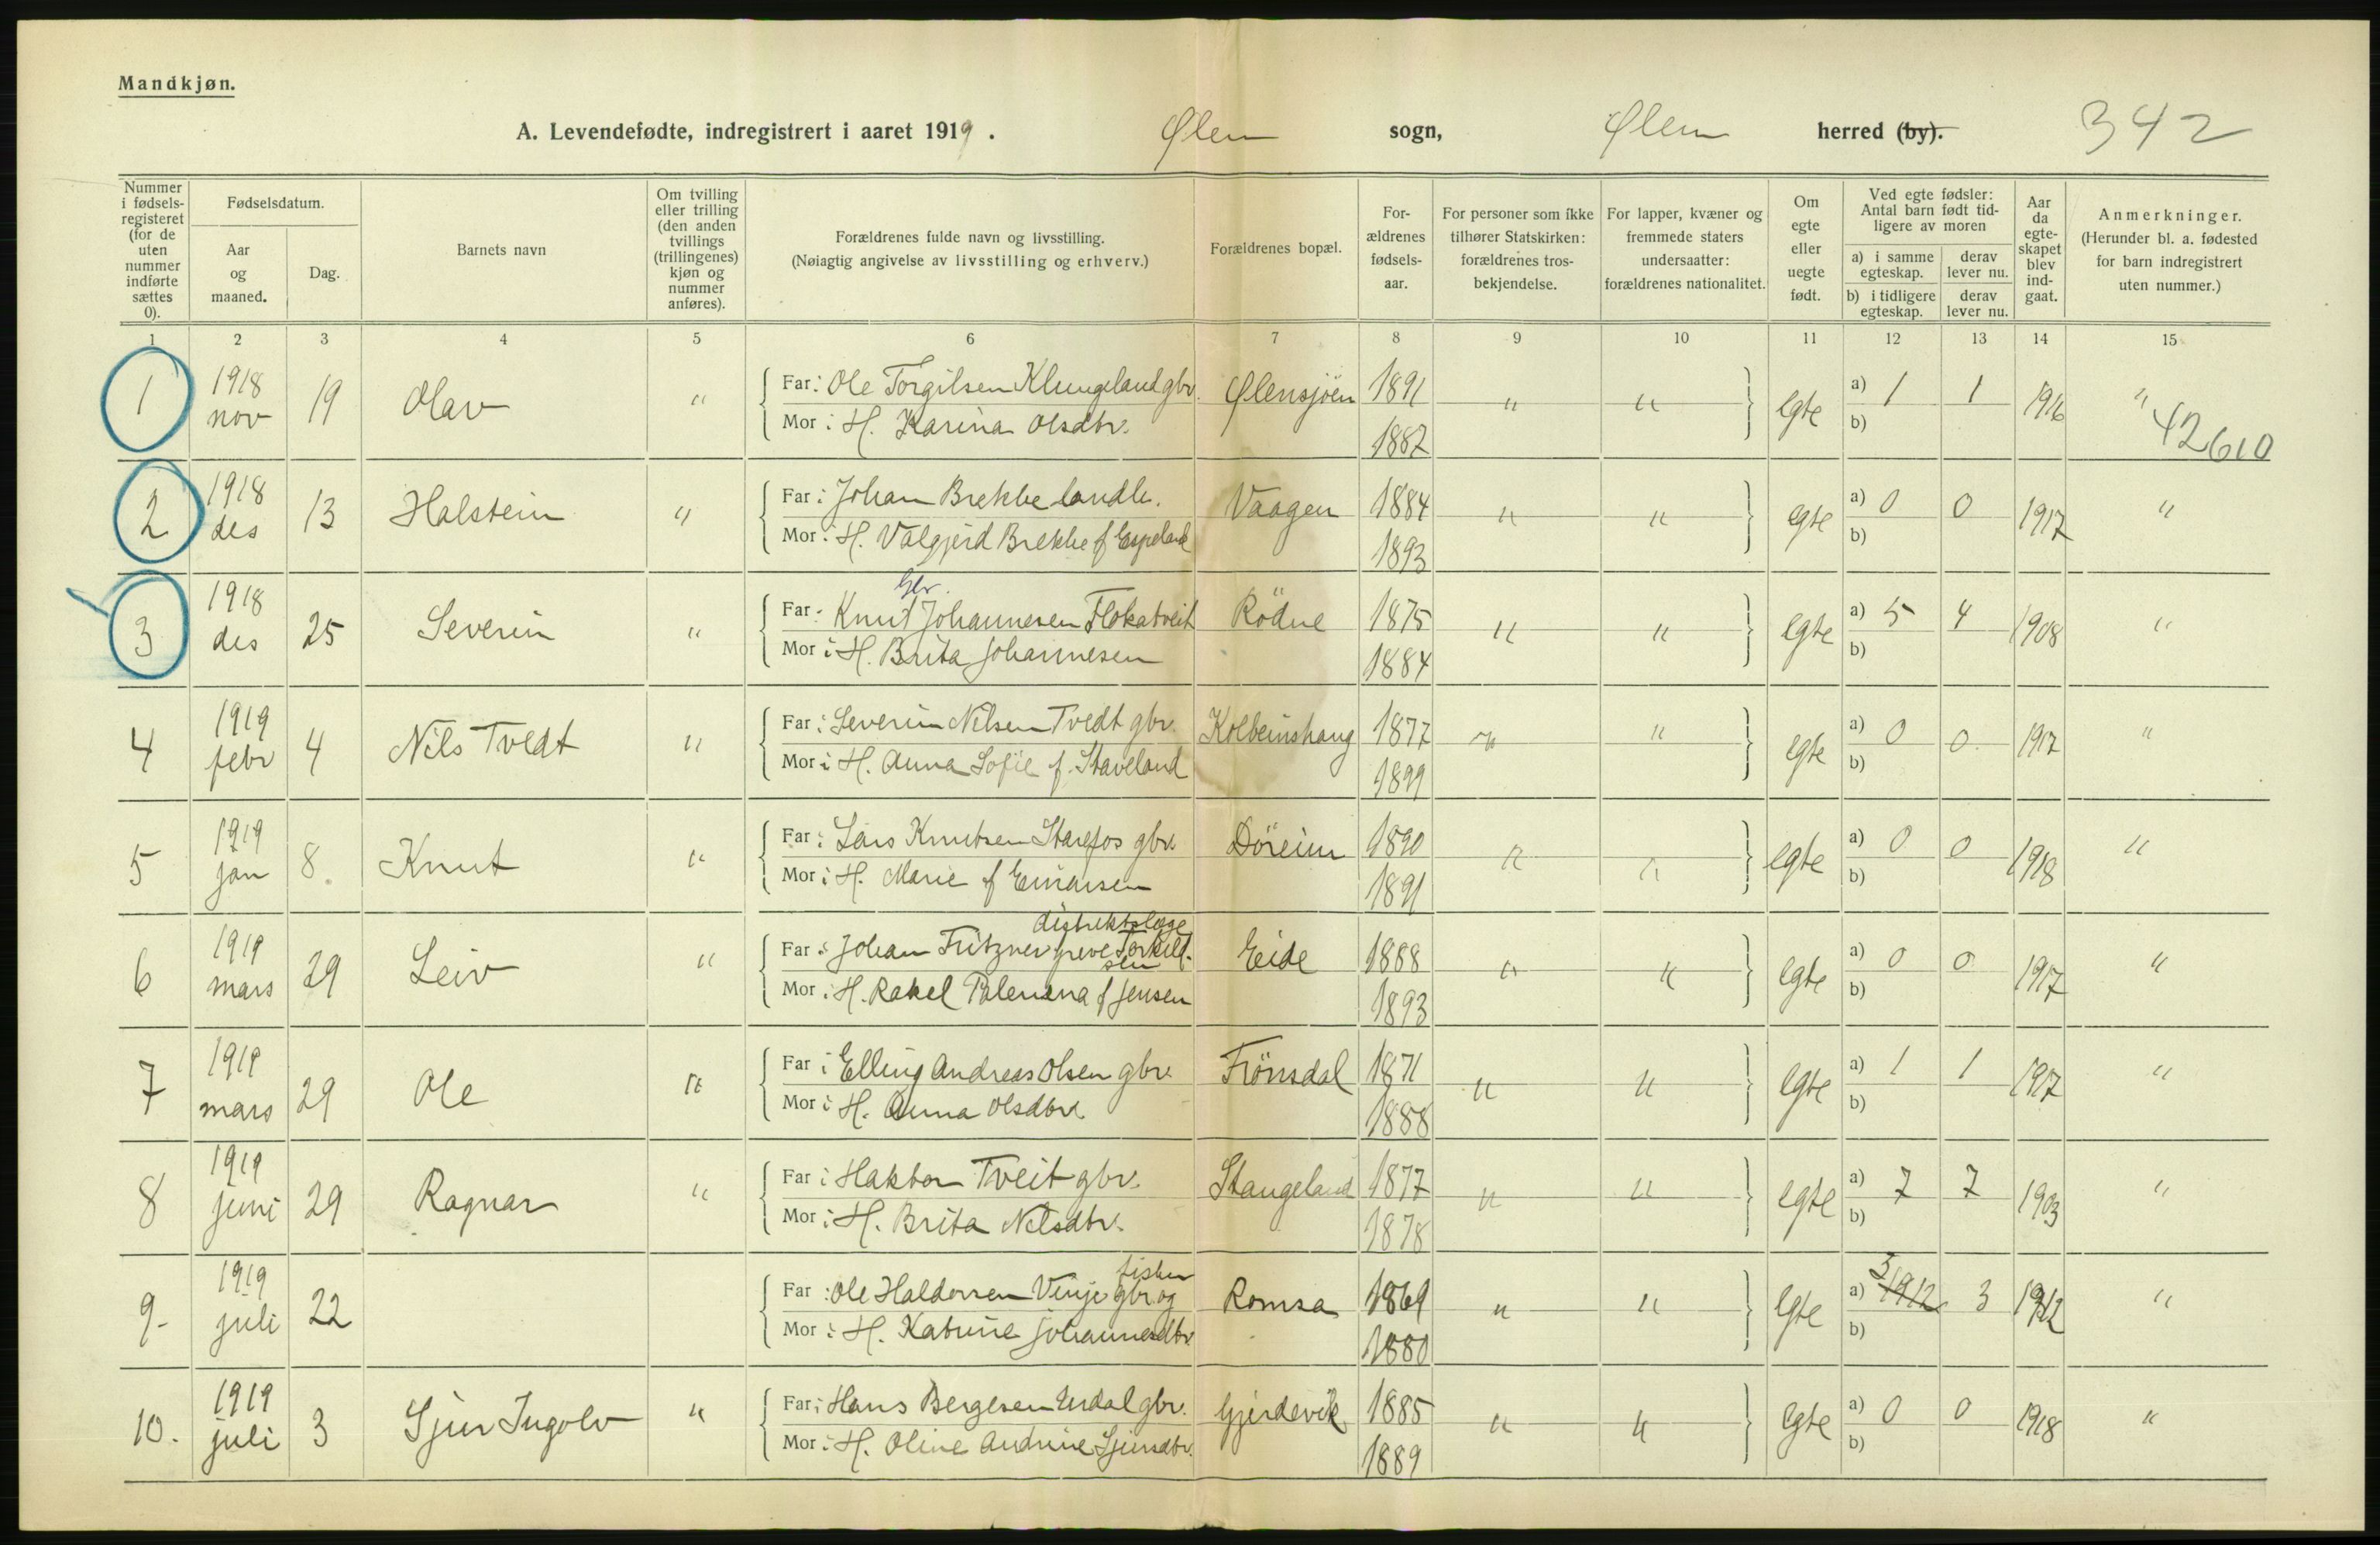 Mandkjøn.
A. Levendefødte, indregistrert i aaret 1919. Ølen sogn, Ølen herred (by). 342
Nummer i fødsels-registeret (for de uten nummer indførte sættes 0).
Fødselsdatum.
Aar og maaned.
Dag.
Barnets navn
Om tvilling eller trilling (den anden tvillings (trillingenes) kjøn og nummer anføres).
Forældrenes fulde navn og livsstilling.
(Nøiagtig angivelse av livsstilling og erhverv.)
Forældrenes bopæl.
For-ældrenes fødsels-aar.
For personer som ikke tilhører Statskirken: forældrenes tros-bekjendelse.
For lapper, kvæner og fremmede staters undersaatter: forældrenes nationalitet.
Om egte eller uegte født.
Ved egte fødsler: Antal barn født tid-ligere av moren
a) i samme egteskap. derav lever nu.
b) i tidligere egteskap. derav lever nu.
Aar da egte-skapet blev ind-gaat.
Anmerkninger.
(Herunder bl. a. fødested for barn indregistrert uten nummer.)
1 2 3 4 5 6 7 8 9 10 11 12 13 14 15
1 1918 nov 19 Olav " Far: Ole Torgilsen Klungeland gbr. Ølensjöen 1891 " " egte a) 1 1 1916 "
Mor: H. Karina Olsdtr. 1887 b) 42610
2 1918 des 13 Halstein " Far: Johan Brekke landh. Vaagen 1884 " " egte a) 0 0 1917 "
Mor: H. Valgjerd Brekke f Espeland 1893 b)
gbr.
3 1918 des 25 Severin " Far: Knut Johannesen Flokatveit Rödne 1875 " " egte a) 5 4 1908 "
Mor: H. Brita Johannesen 1884 b)
4 1919 febr 4 Nils Tvedt " Far: Severin Nilsen Tvedt gbr. Kolbeinshaug 1877 " " egte a) 0 0 1917 "
Mor: H. Anna Sofie f. Staveland 1899 b)
5 1919 jan 8. Knut " Far: Lars Knutsen Starefos gbr. Döreim 1890 " " egte a) 0 0 1918 "
Mor: H. Marie f Einarsen 1891 b)
distriktslæge
6 1919 mars 29 Leiv " Far: Johan Fritzner Greve Torkild-sen Eide 1888 " " egte a) 0 0 1917 "
Mor: H. Rakel Palenina f Jensen 1893 b)
7 1919 mars 29 Ole " Far: Elling Andreas Olsen gbr. Frönsdal 1871 " " egte a) 1 1 1917 "
Mor: H. Anna Olsdtr. 1888 b)
8 1919 juni 29 Ragnar " Far: Haktor Tveit gbr. Stangeland 1877 " " egte a) 7 7 1903 "
Mor: H. Brita Nilsdtr. 1878 b)
fisker
9- 1919 juli 22 Far: Ole Haldorsen Vinje gbr. og Romsa 1869 " " egte a) 1912 3 3 1912 "
Mor: H. Katrine Johannesdtr 1880 b)
10. 1919 juli 3 Sjur Ingolv " Far: Hans Bergesen Erdal gbr. Gjerdevik 1885 " " egte a) 0 0 1918 "
Mor: H. Oline Andrine Sjursdtr. 1889 b)